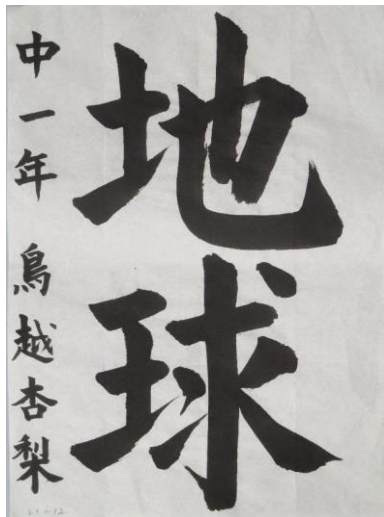 地球
中一年 鳥越杏梨